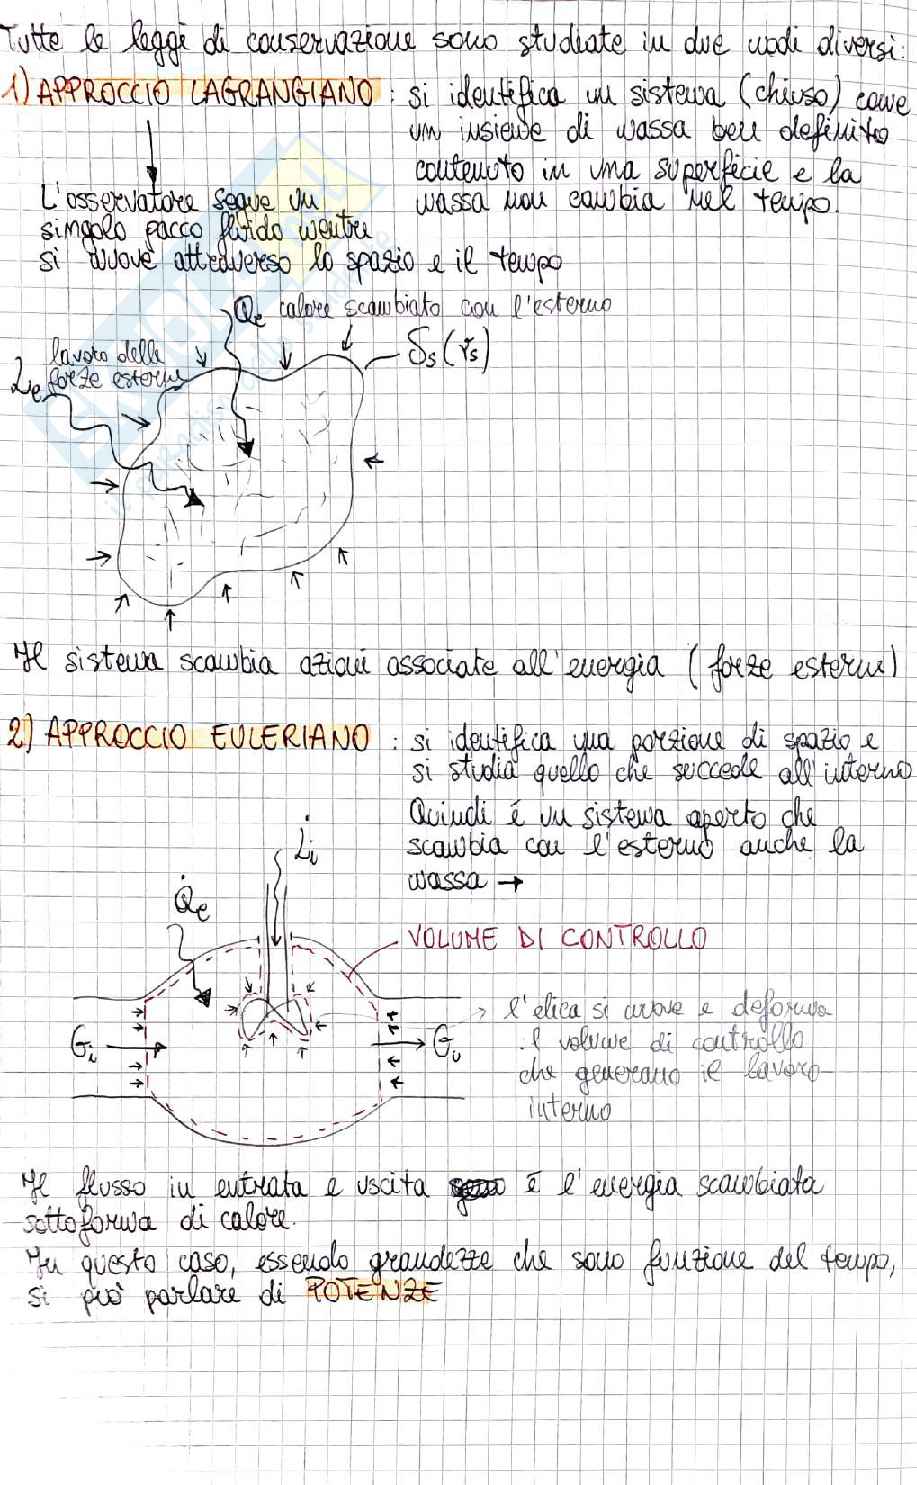 Tutte le leggi di conservazione sono studiate in due modi diversi:
1) APPROCCIO LAGRANGIANO: si identifica un sistema (chiuso) come
un insieme di massa ben definito
contenuto in una superficie e la
massa non cambia nel tempo.
L'osservatore segue un
singolo pacco fluido mentre
si muove attraverso lo spazio e il tempo
Qe calore scambiato con l'esterno
Ss (rs)
lavoro delle
Le forze esterne
Il sistema scambia azioni associate all'energia (forze esterne)
2) APPROCCIO EULERIANO: si identifica una porzione di spazio e
si studia quello che succede all'interno
Quindi é un sistema aperto che
scambia con l'esterno anche la
massa →
L̇i
Q̇e
VOLUME DI CONTROLLO
Gi
Gu
→ l'elica si muove e deforma
il volume di controllo
che generano il lavoro
interno
Il flusso in entrata e uscita é l'energia scambiata
sottoforma di calore.
In questo caso, essendo grandezze che sono funzione del tempo,
si può parlare di POTENZE